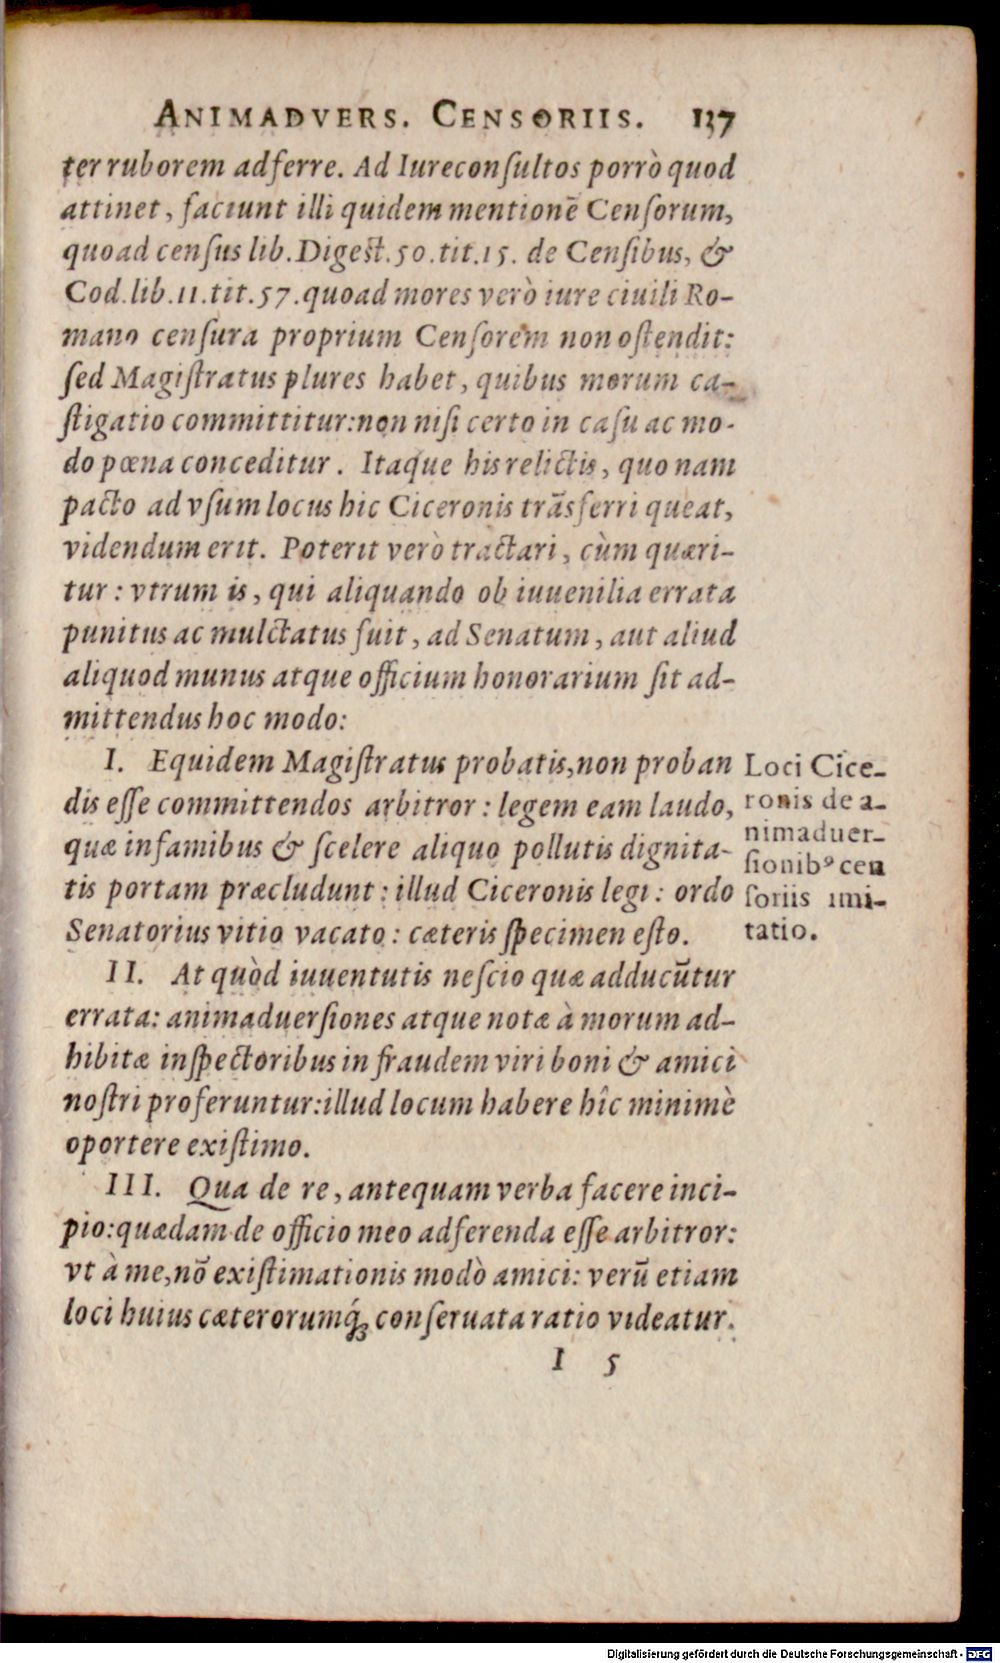 ANIMADVERS. CENSORIIS. 137
ter ruborem adferre. Ad Iureconſultos porrò quod
attinet, faciunt illi quidem mentionē Cenſorum,
quoad cenſus lib. Digeſt. 50. tit. 15. de Cenſibus, &
Cod. lib. 11. tit. 57. quoad mores verò iure ciuili Ro-
mano cenſura proprium Cenſorem non oſtendit:
ſed Magiſtratus plures habet, quibus morum ca-
ſtigatio committitur: non niſi certo in caſu ac mo-
do pœna conceditur. Itaque his relictis, quo nam
pacto ad vſum locus hic Ciceronis trāsferri queat,
videndum erit. Poterit verò tractari, cùm quæri-
tur: vtrum is, qui aliquando ob iuuenilia errata
punitus ac mulctatus fuit, ad Senatum, aut aliud
aliquod munus atque officium honorarium ſit ad-
mittendus hoc modo:
I. Equidem Magiſtratus probatis, non proban
dis eſſe committendos arbitror: legem eam laudo,
quæ infamibus & ſcelere aliquo pollutis dignita-
tis portam præcludunt: illud Ciceronis legi: ordo
Senatorius vitio vacato: cæteris ſpecimen eſto.
Loci Cice-
ronis de a-
nimaduer-
ſionibꝰ cen
ſoriis imi-
tatio.
II. At quòd iuuentutis neſcio quæ adducūtur
errata: animaduerſiones atque notæ à morum ad-
hibitæ inſpectoribus in fraudem viri boni & amici
noſtri proferuntur: illud locum habere hîc minimè
oportere exiſtimo.
III. Qua de re, antequam verba facere inci-
pio: quædam de officio meo adferenda eſſe arbitror:
vt à me, nō exiſtimationis modò amici: verū etiam
loci huius cæterorumq́; conſeruata ratio videatur.
I 5
Digitalisierung gefördert durch die Deutsche Forschungsgemeinschaft - DFG